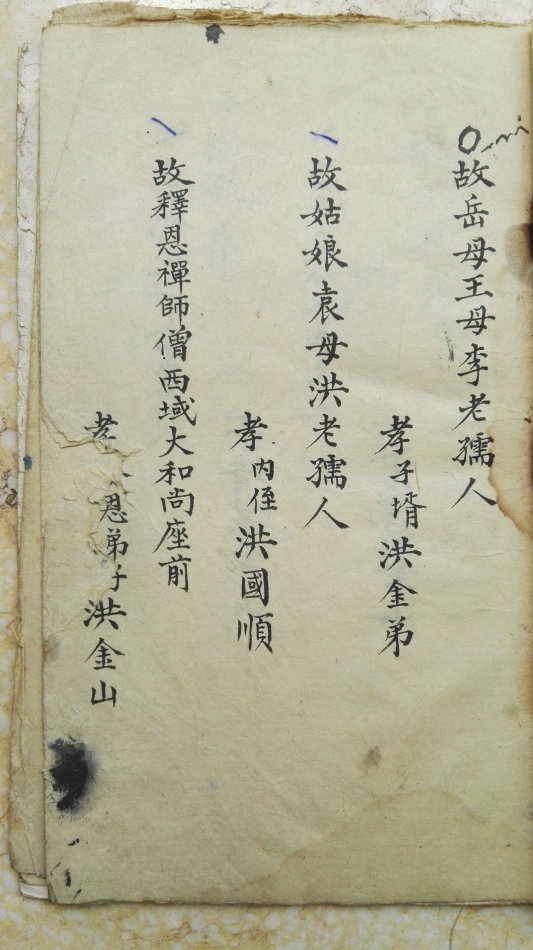 故岳母王母李老孺人
孝子壻洪金弟
故姑娘袁母洪老孺人
孝内侄洪國順
故釋恩禪師僧西域大和尚座前
孝恩弟子洪金山